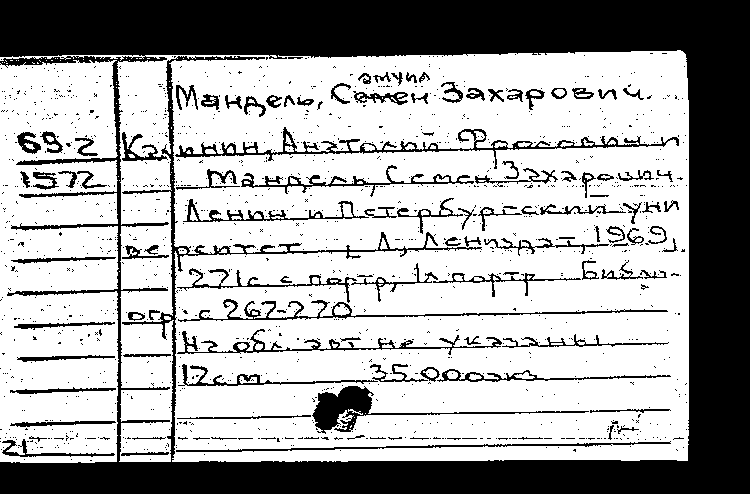 эмуил
Мандель, Семен Захарович.
69-2 Калинин, Анатолий Фролович и
1572 Мандель, Семен Захарович.
Ленин и Петербургский уни
верситет. Л., Лениздат, 1969,
271с с портр; 1л портр Библи-
огр: с 267-270
На обл. авт не указаны
17см. 35.000экз
21